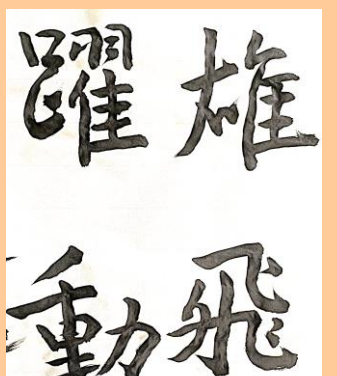 雄飛
躍動